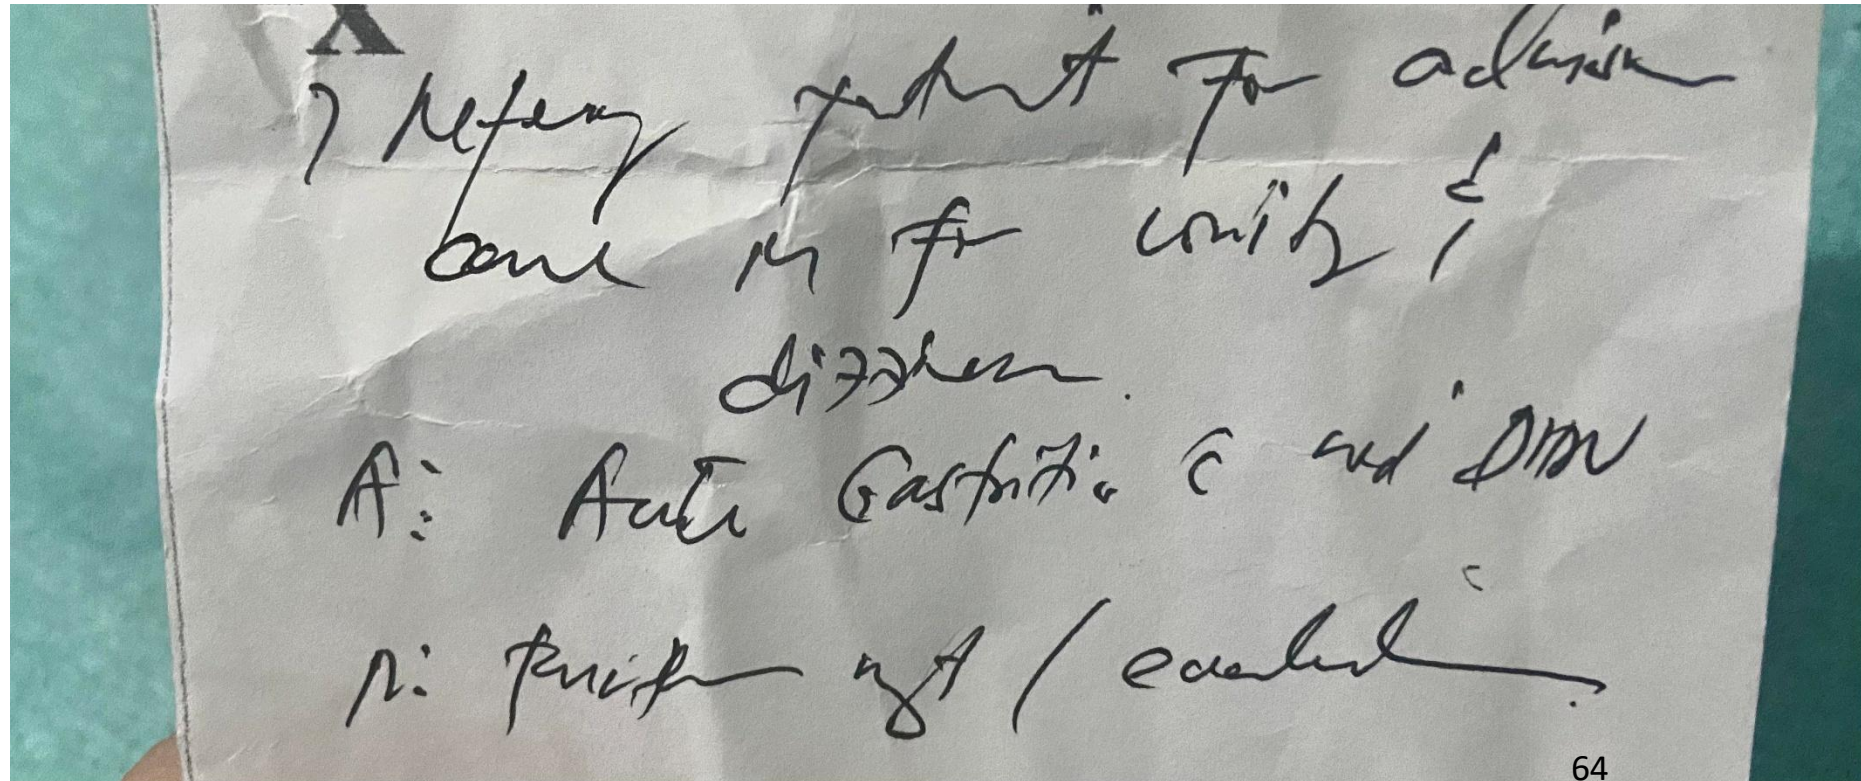 X
Refering patient for admission
came in for vomiting c̄
dizziness.
A: Acute Gastritis c̄ mod DHN
P:  mgt / evaluation.
64